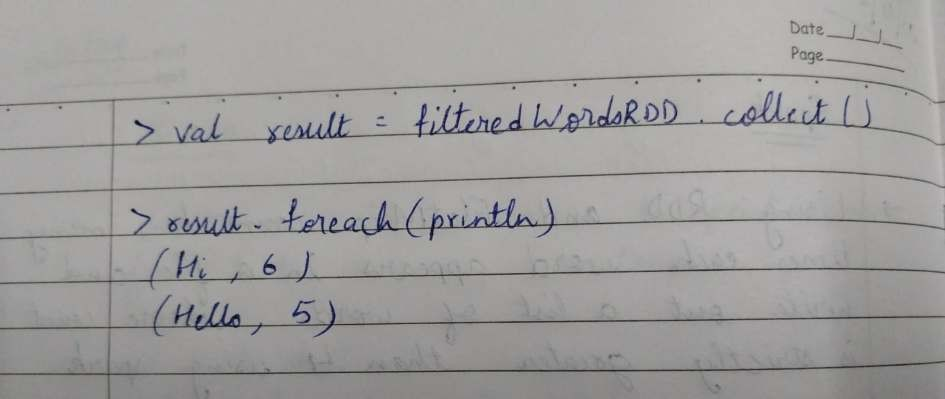 Date
Page
> val result = filteredWordsRDD. collect()
> result. foreach (println)
(Hi, 6)
(Hello, 5)